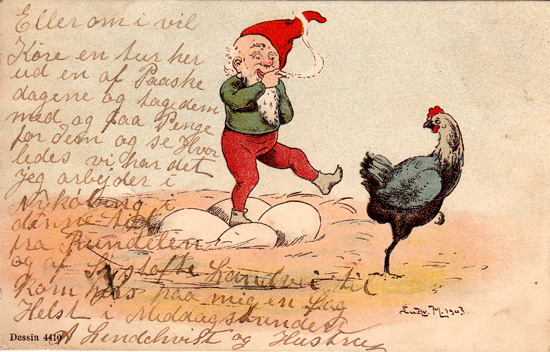 Eller om i vil
Köre en tur her
ud en af Paaske
dagene og tage dem
med og paa Penge
for dem og se Hvor
ledes vi har det
Jeg arbejder i
Nykøbing i
denne
fra Rundelen
og af Systofte Landvei til
Kom paa mig en Dag
Helst i Middagsstunden
A Lindchvist og Hustru
Ludv. M. 1903.
Dessin 4410